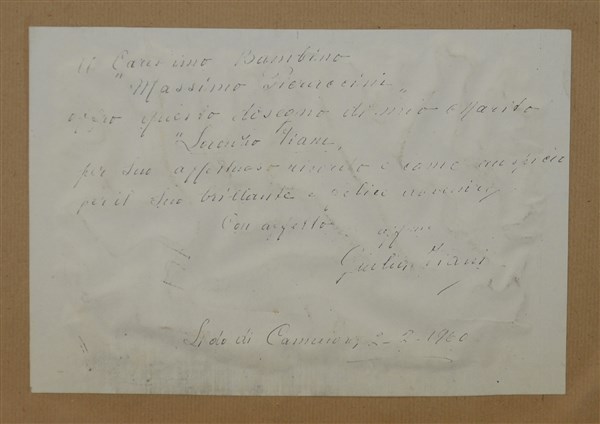 Al Carissimo Bambino
"Massimo Pieruccini"
offro questo disegno di mio Marito
"Lorenzo Viani"
per suo affettuoso ricordo e come auspicio
per il suo brillante e felice avvenire,
Con affetto
Giulia Viani
Lido di Camaiore, 2-2-1960